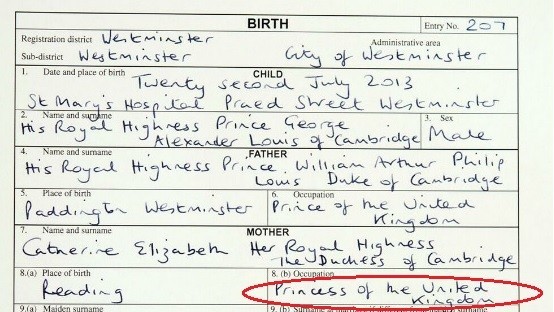 BIRTH
Entry No. 207
Registration district Westminster
Administrative area
Sub-district Westminster City of Westminster
1. Date and place of birth CHILD
Twenty second July 2013
St Mary's Hospital Praed Street Westminster
2. Name and surname 3. Sex
His Royal Highness Prince George
Alexander Louis of Cambridge Male
4. Name and surname FATHER
His Royal Highness Prince William Arthur Philip
Louis Duke of Cambridge
5. Place of birth 6. Occupation
Paddington Westminster Prince of the United
Kingdom
7. Name and surname MOTHER
Catherine Elizabeth Her Royal Highness
The Duchess of Cambridge
8.(a) Place of birth 8. (b) Occupation
Reading Princess of the United
Kingdom
9.(a) Maiden surname 9. (b) Surname at marriage if different from maiden surname